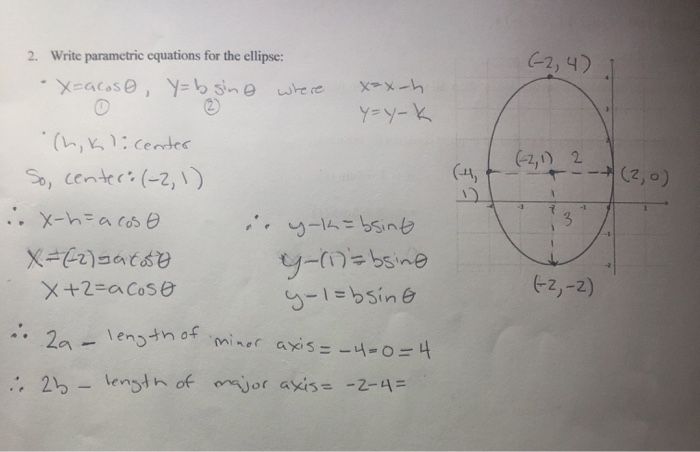 2. Write parametric equations for the ellipse:
• X=acosθ, Y=b sinθ where X=x-h
① ② Y=y-k
• (h,k): center
So, center: (-2,1)
∴ x-h=a cosθ
x-(-2)=acosθ
x+2=acosθ
∴ y-k=bsinθ
y-(1)=bsinθ
y-1=bsinθ
∴ 2a - length of minor axis = -4-0=4
∴ 2b - length of major axis= -2-4=
(-2,4)
(-2,1) 2
(-4,
1)
(2,0)
3
(-2,-2)